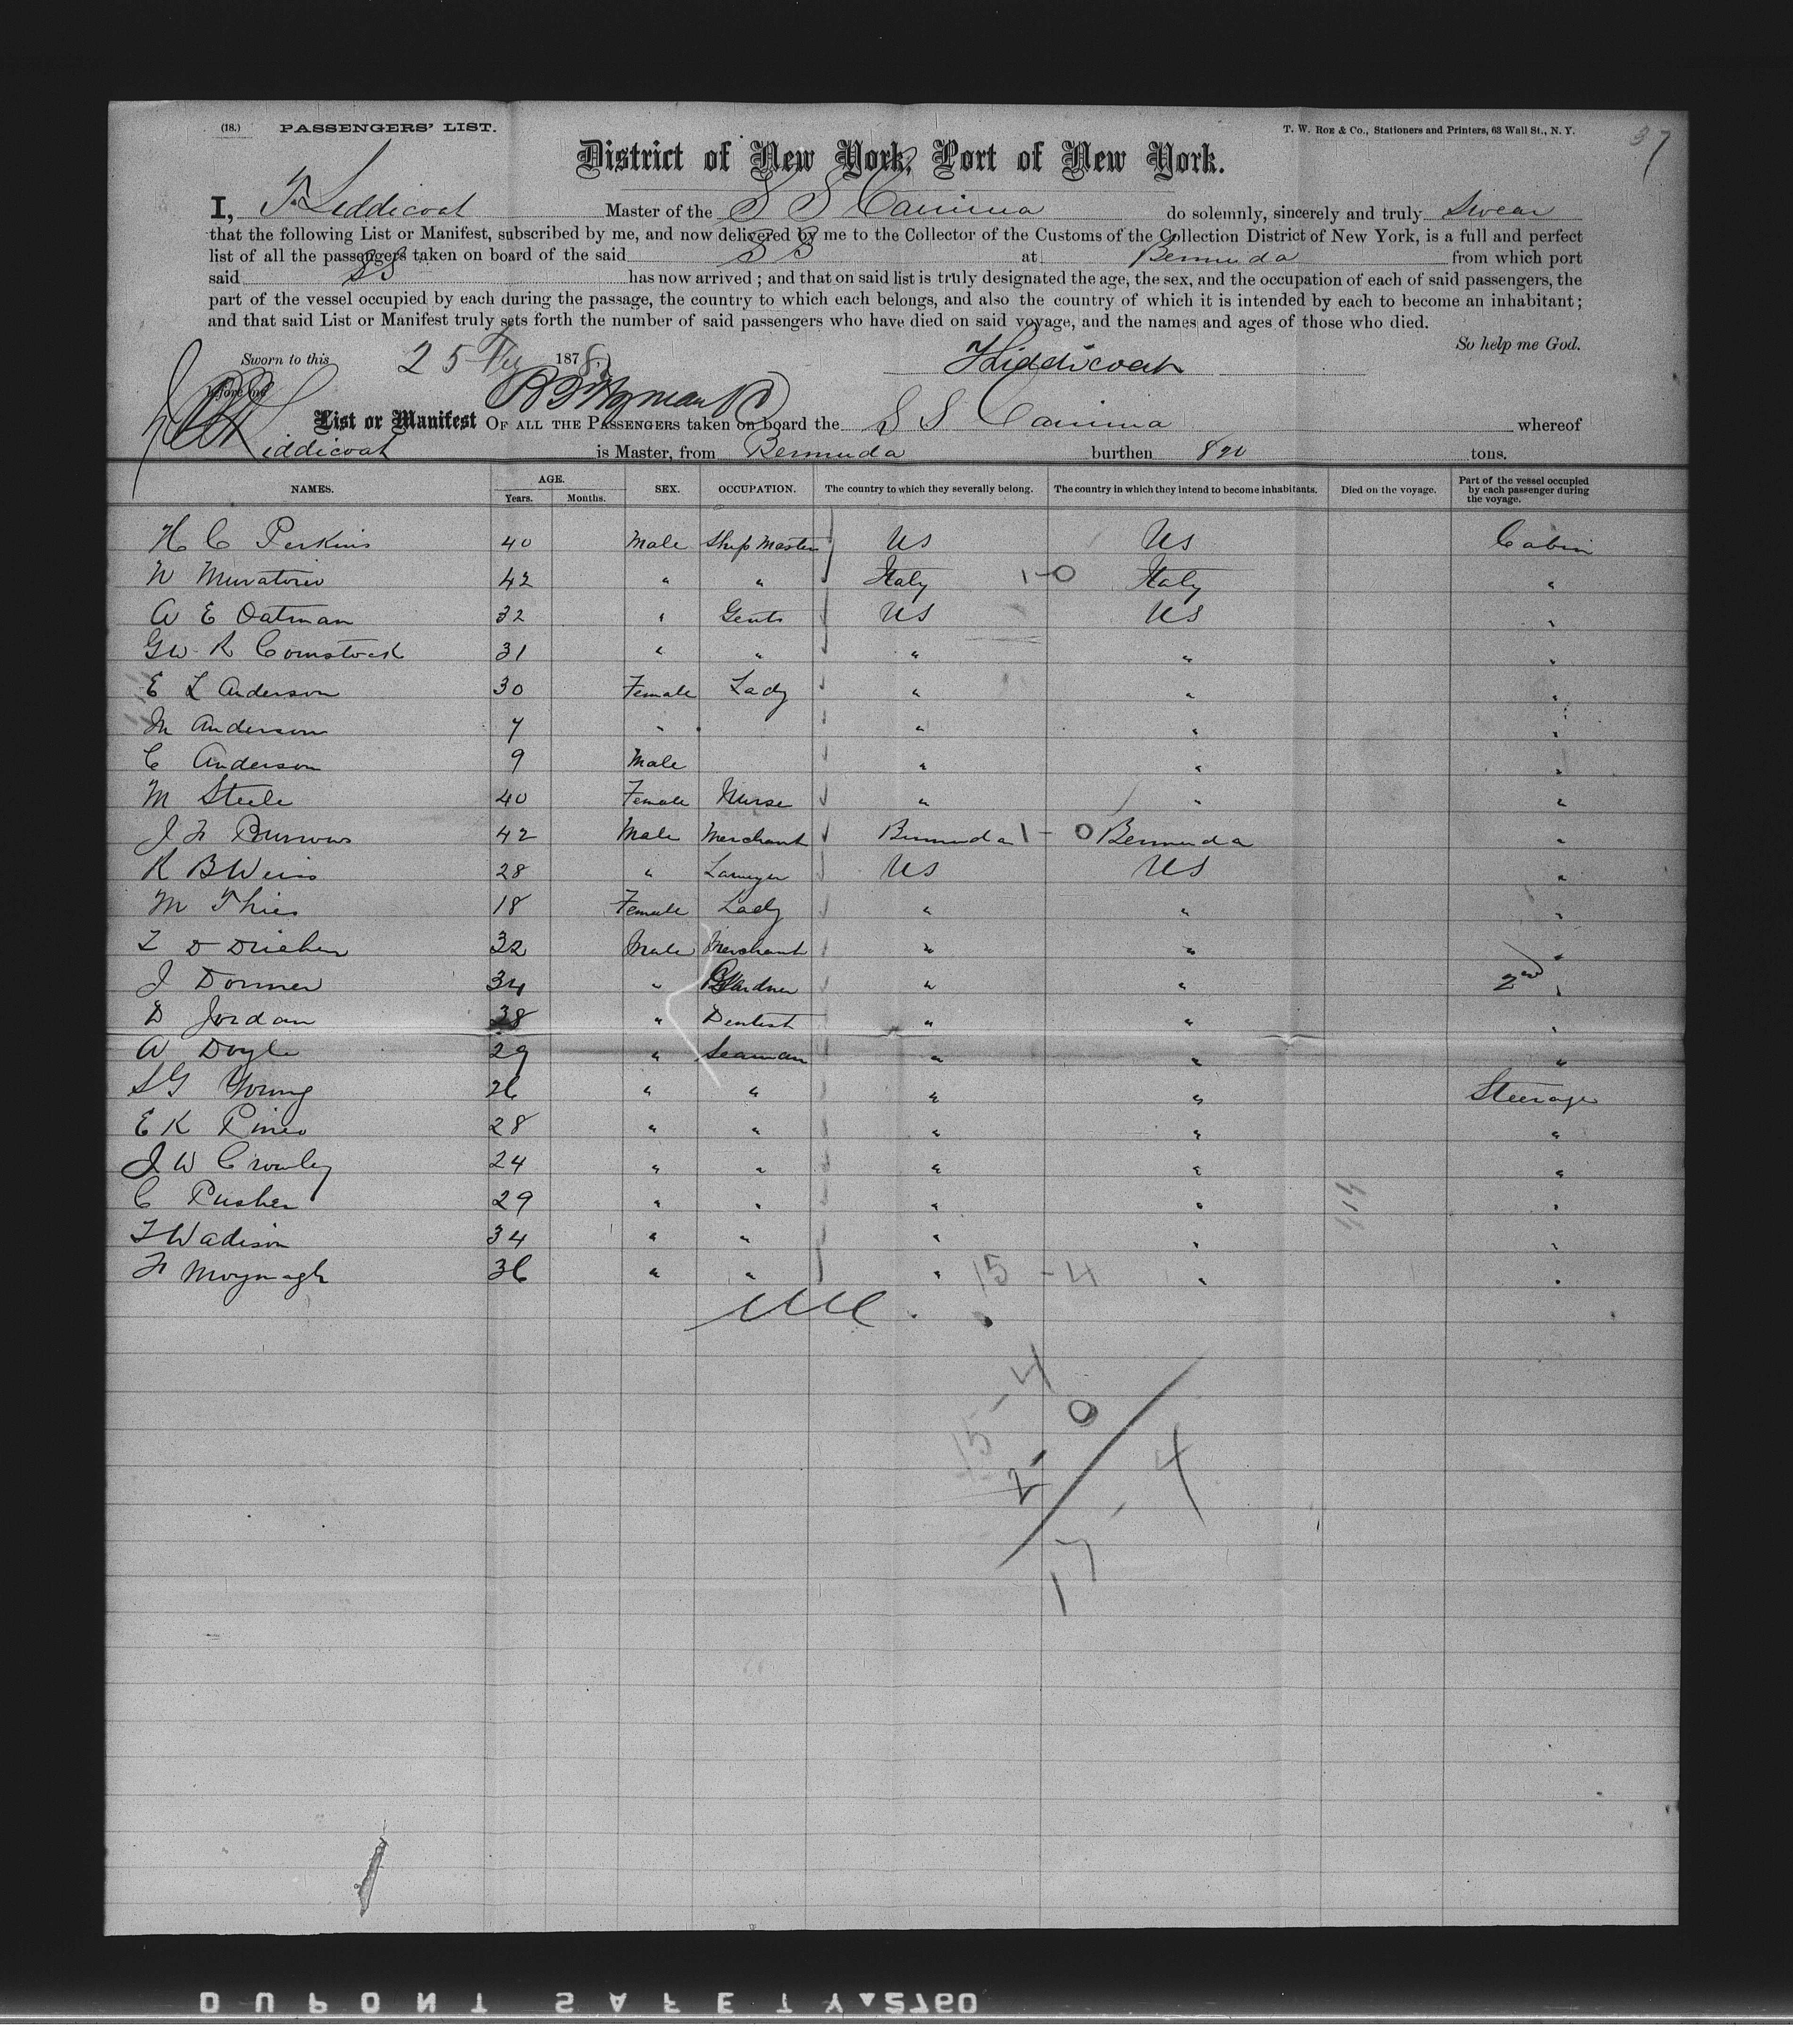 (18.) PASSENGERS' LIST. T. W. Roe & Co., Stationers and Printers, 63 Wall St., N. Y. 37
District of New York, Port of New York.
I, Liddicoat Master of the S S Canima do solemnly, sincerely and truly Swear
that the following List or Manifest, subscribed by me, and now delivered by me to the Collector of the Customs of the Collection District of New York, is a full and perfect
list of all the passengers taken on board of the said S S at Bermuda from which port
said SS has now arrived ; and that on said list is truly designated the age, the sex, and the occupation of each of said passengers, the
part of the vessel occupied by each during the passage, the country to which each belongs, and also the country of which it is intended by each to become an inhabitant ;
and that said List or Manifest truly sets forth the number of said passengers who have died on said voyage, and the names and ages of those who died.
So help me God.
Sworn to this 25 1878 Liddicoat
before me
List or Manifest OF ALL THE PASSENGERS taken on board the S S Canima whereof
Liddicoat is Master, from Bermuda burthen 820 tons.
NAMES. AGE. Years. Months. SEX. OCCUPATION. The country to which they severally belong. The country in which they intend to become inhabitants. Died on the voyage. Part of the vessel occupied by each passenger during the voyage.
H C Perkins 40 Male Ship Master US US Cabin
N Muratorio 42 " " Italy 1-0 Italy "
A E Oatman 32 " Gents US US "
GW R Comstock 31 " " " " "
E L Anderson 30 Female Lady " " "
M Anderson 7 " " " "
C Anderson 9 Male " " "
M Steele 40 Female Nurse " " "
J H Burrows 42 Male Merchant Bermuda 1-0 Bermuda "
R B Weiss 28 " Lawyer US US "
M Thies 18 Female Lady " " "
D 32 Male Merchant " " "
J Dormer 34 " Gardner " " 2nd "
D Jordan 38 " Dentist " " "
A Doyle 29 " Seaman " " "
S G Young 26 " " " " Steerage
E K Pineo 28 " " " " "
J W Crowley 24 " " " " "
C Pusher 29 " " " " "
T Wadison 34 " " " " "
F Moynagh 36 " " " 15-4 " "
15-4
2-0
17-4
DUPONT SAFETY 2760